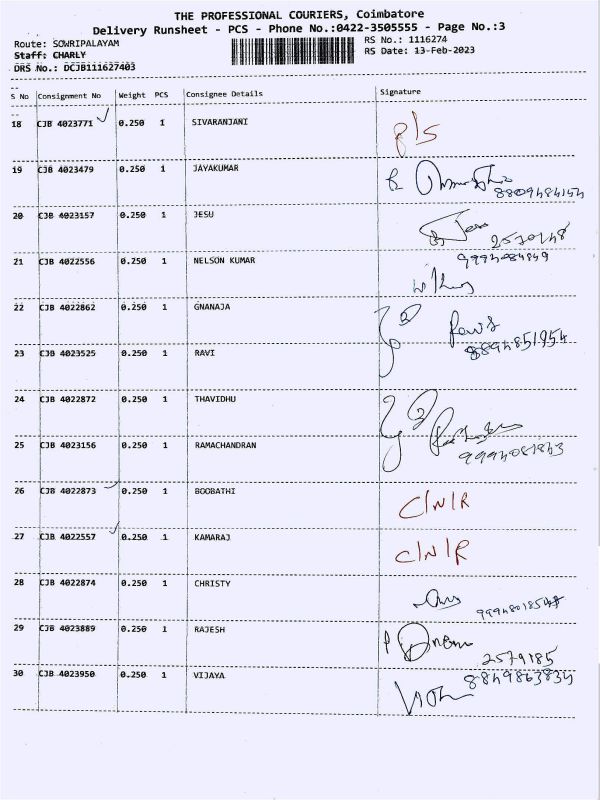 THE PROFESSIONAL COURIERS, Coimbatore
Delivery Runsheet - PCS - Phone No.:0422-3505555 - Page No.:3
Route: SOWRIPALAYAM
RS No.: 1116274
Staff: CHARLY
RS Date: 13-Feb-2023
DRS No.: DCJB111627403
S No Consignment No Weight PCS Consignee Details Signature
18 CJB 4023771 0.250 1 SIVARANJANI
19 CJB 4023479 0.250 1 JAYAKUMAR
8809484154
20 CJB 4023157 0.250 1 JESU
2570148
21 CJB 4022556 0.250 1 NELSON KUMAR
9994084849
22 CJB 4022862 0.250 1 GNANAJA
8894851954
23 CJB 4023525 0.250 1 RAVI
24 CJB 4022872 0.250 1 THAVIDHU
25 CJB 4023156 0.250 1 RAMACHANDRAN
9994081843
26 CJB 4022873 0.250 1 BOOBATHI C/N/R
27 CJB 4022557 0.250 1 KAMARAJ C/N/R
28 CJB 4022874 0.250 1 CHRISTY
29 CJB 4023889 0.250 1 RAJESH
2579185
30 CJB 4023950 0.250 1 VIJAYA
8849863834